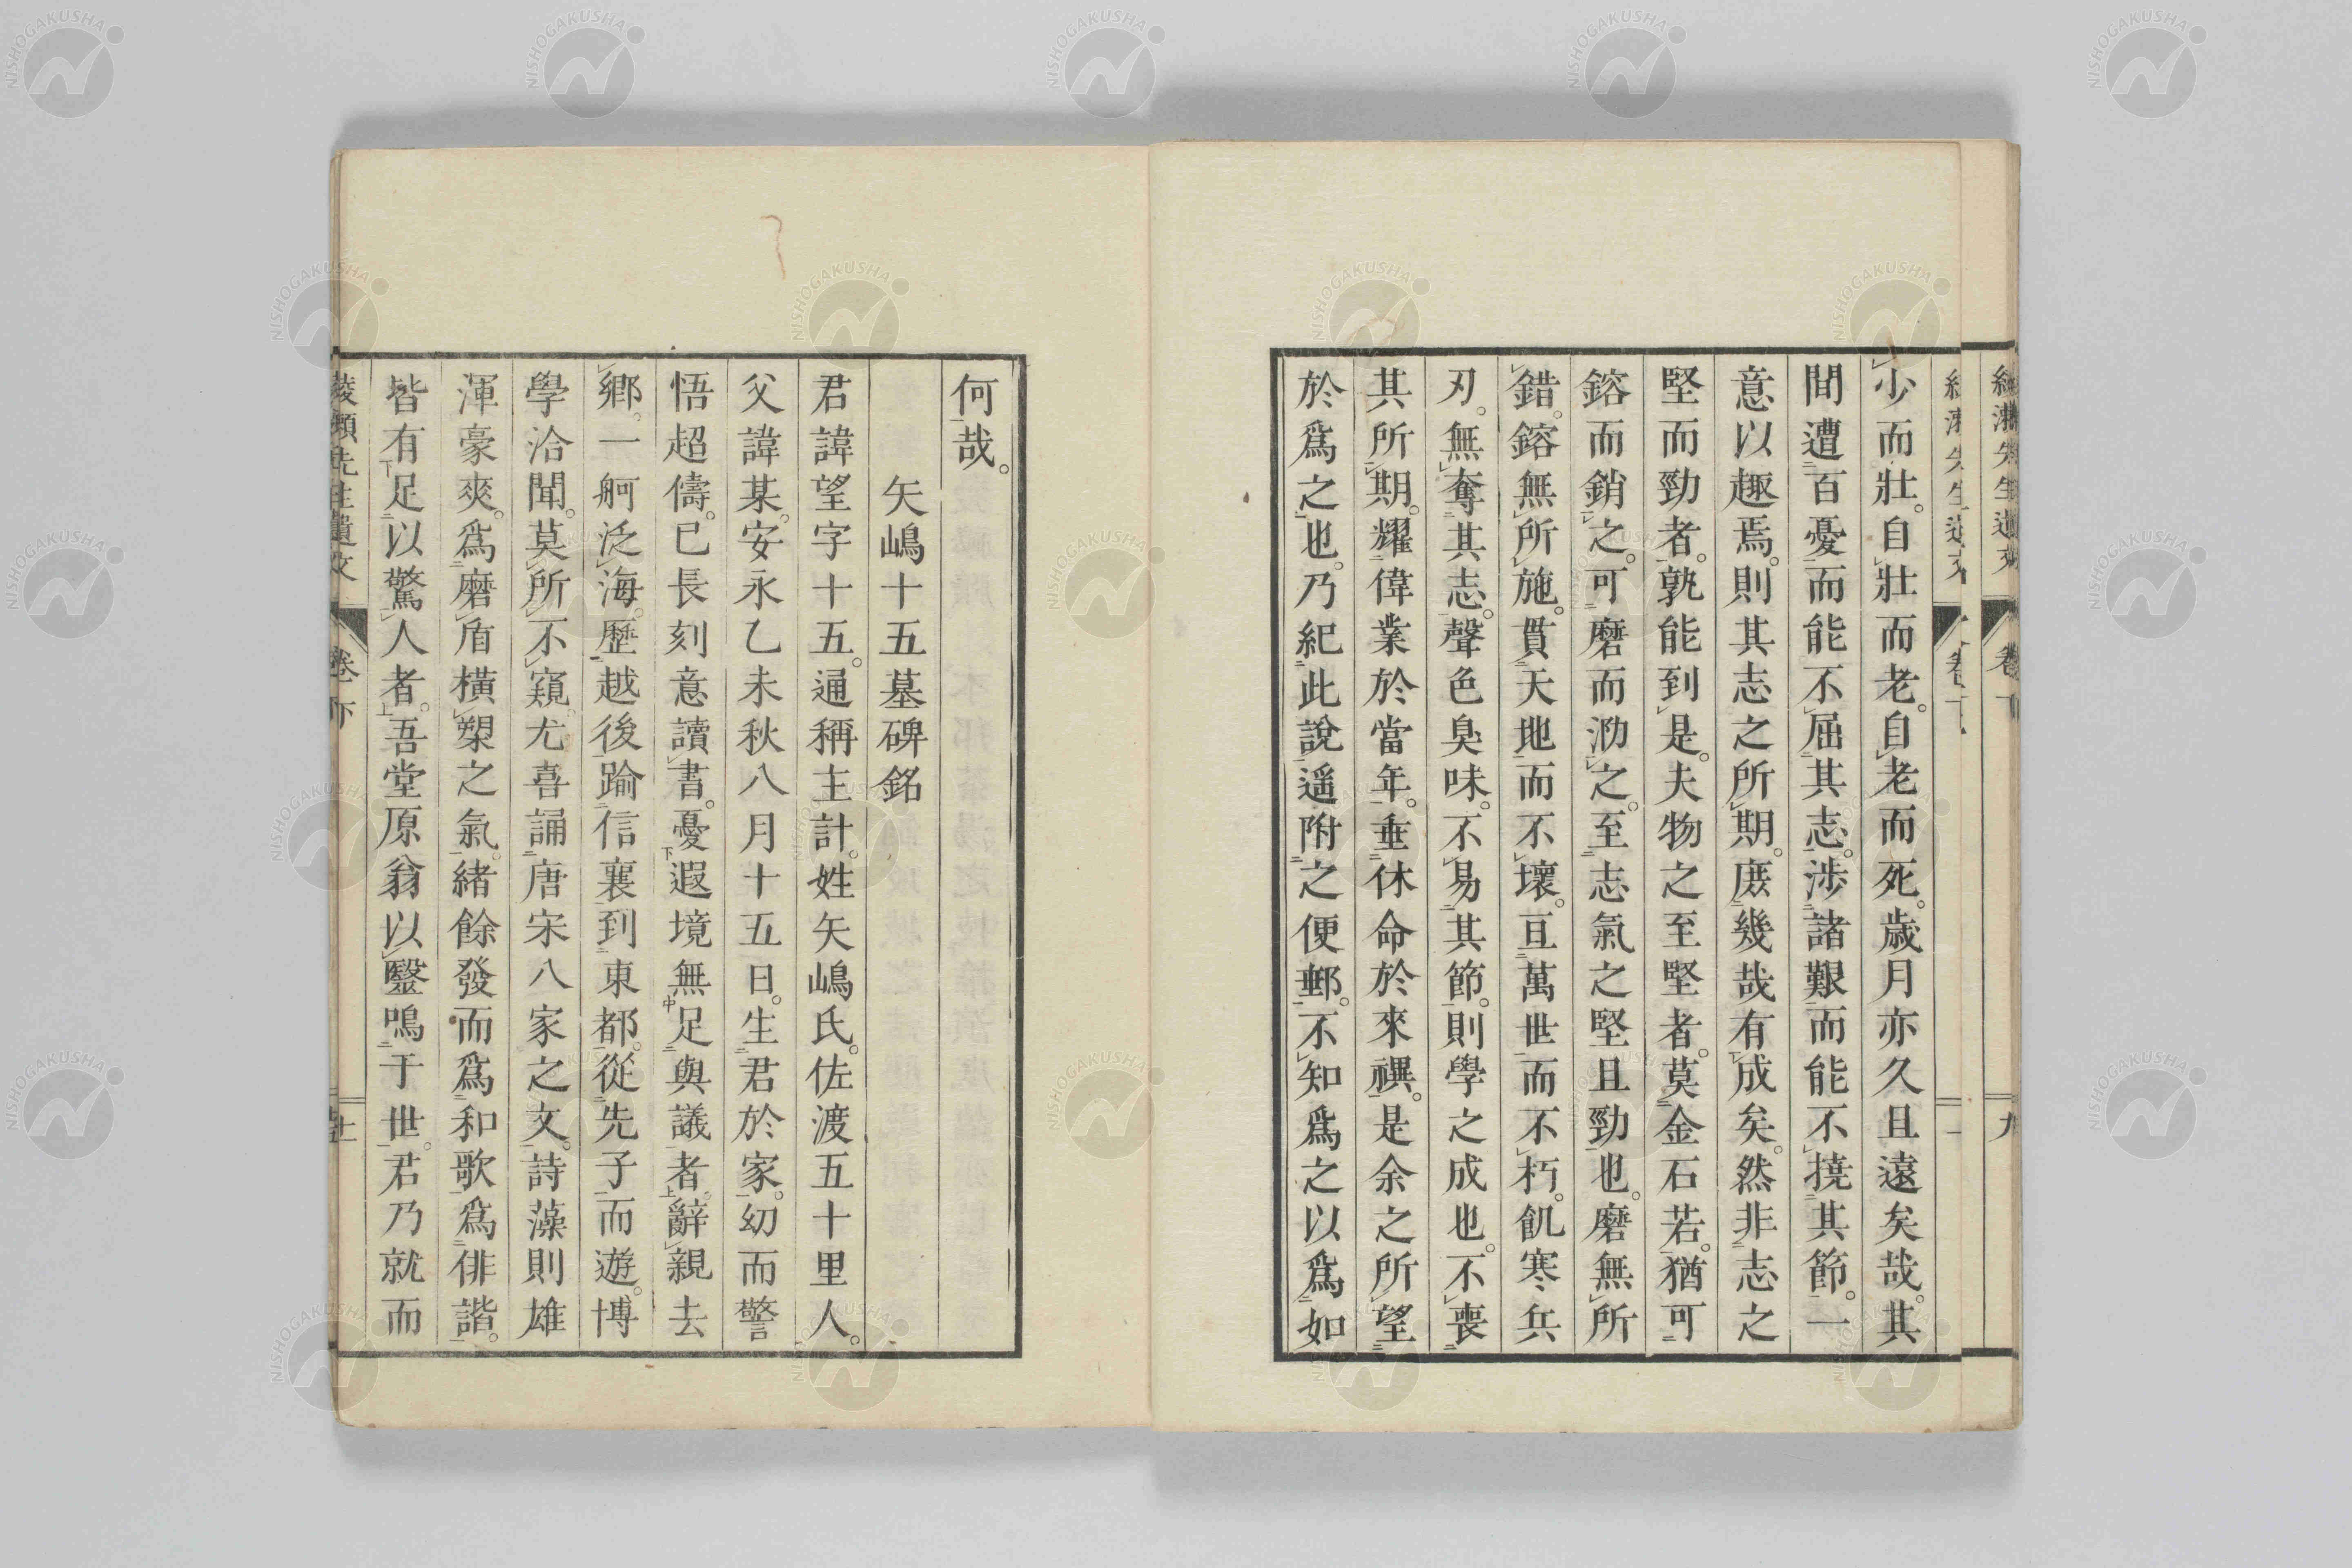 少而壯。自壯而老。自老而死。歲月亦久且遠矣哉。其
間遭百憂而能不屈其志。涉諸艱而能不撓其節。一
意以趣焉。則其志之所期。庶幾哉有成矣。然非志之
堅而勁者。孰能到是。夫物之至堅者。莫金石若。猶可
鎔而銷之。可磨而泐之。至志氣之堅且勁也。磨無所
錯。鎔無所施。貫天地而不壞。亘萬世而不朽。飢寒兵
刃。無奪其志。聲色臭味。不易其節。則學之成也。不喪
其所期。耀偉業於當年。垂休命於來禩。是余之所望
於爲之也。乃紀此說遥附之便郵。不知爲之以爲如
何哉。
矢嶋十五墓碑銘
君諱望字十五。通稱主計。姓矢嶋氏。佐渡五十里人。
父諱某。安永乙未秋八月十五日。生君於家。幼而警
悟超儔。已長刻意讀書。憂遐境無足與議者。辭親去
鄉。一舸泛海。歷越後踰信襄到東都。從先子而遊。博
學洽聞。莫所不窺。尤喜誦唐宋八家之文。詩藻則雄
渾豪爽。爲磨盾橫槊之氣。緒餘發而爲和歌爲俳諧。
皆有足以驚人者。吾堂原翁以毉鳴于世。君乃就而
綾瀬先生遺文 卷下
NISHOGAKUSHA